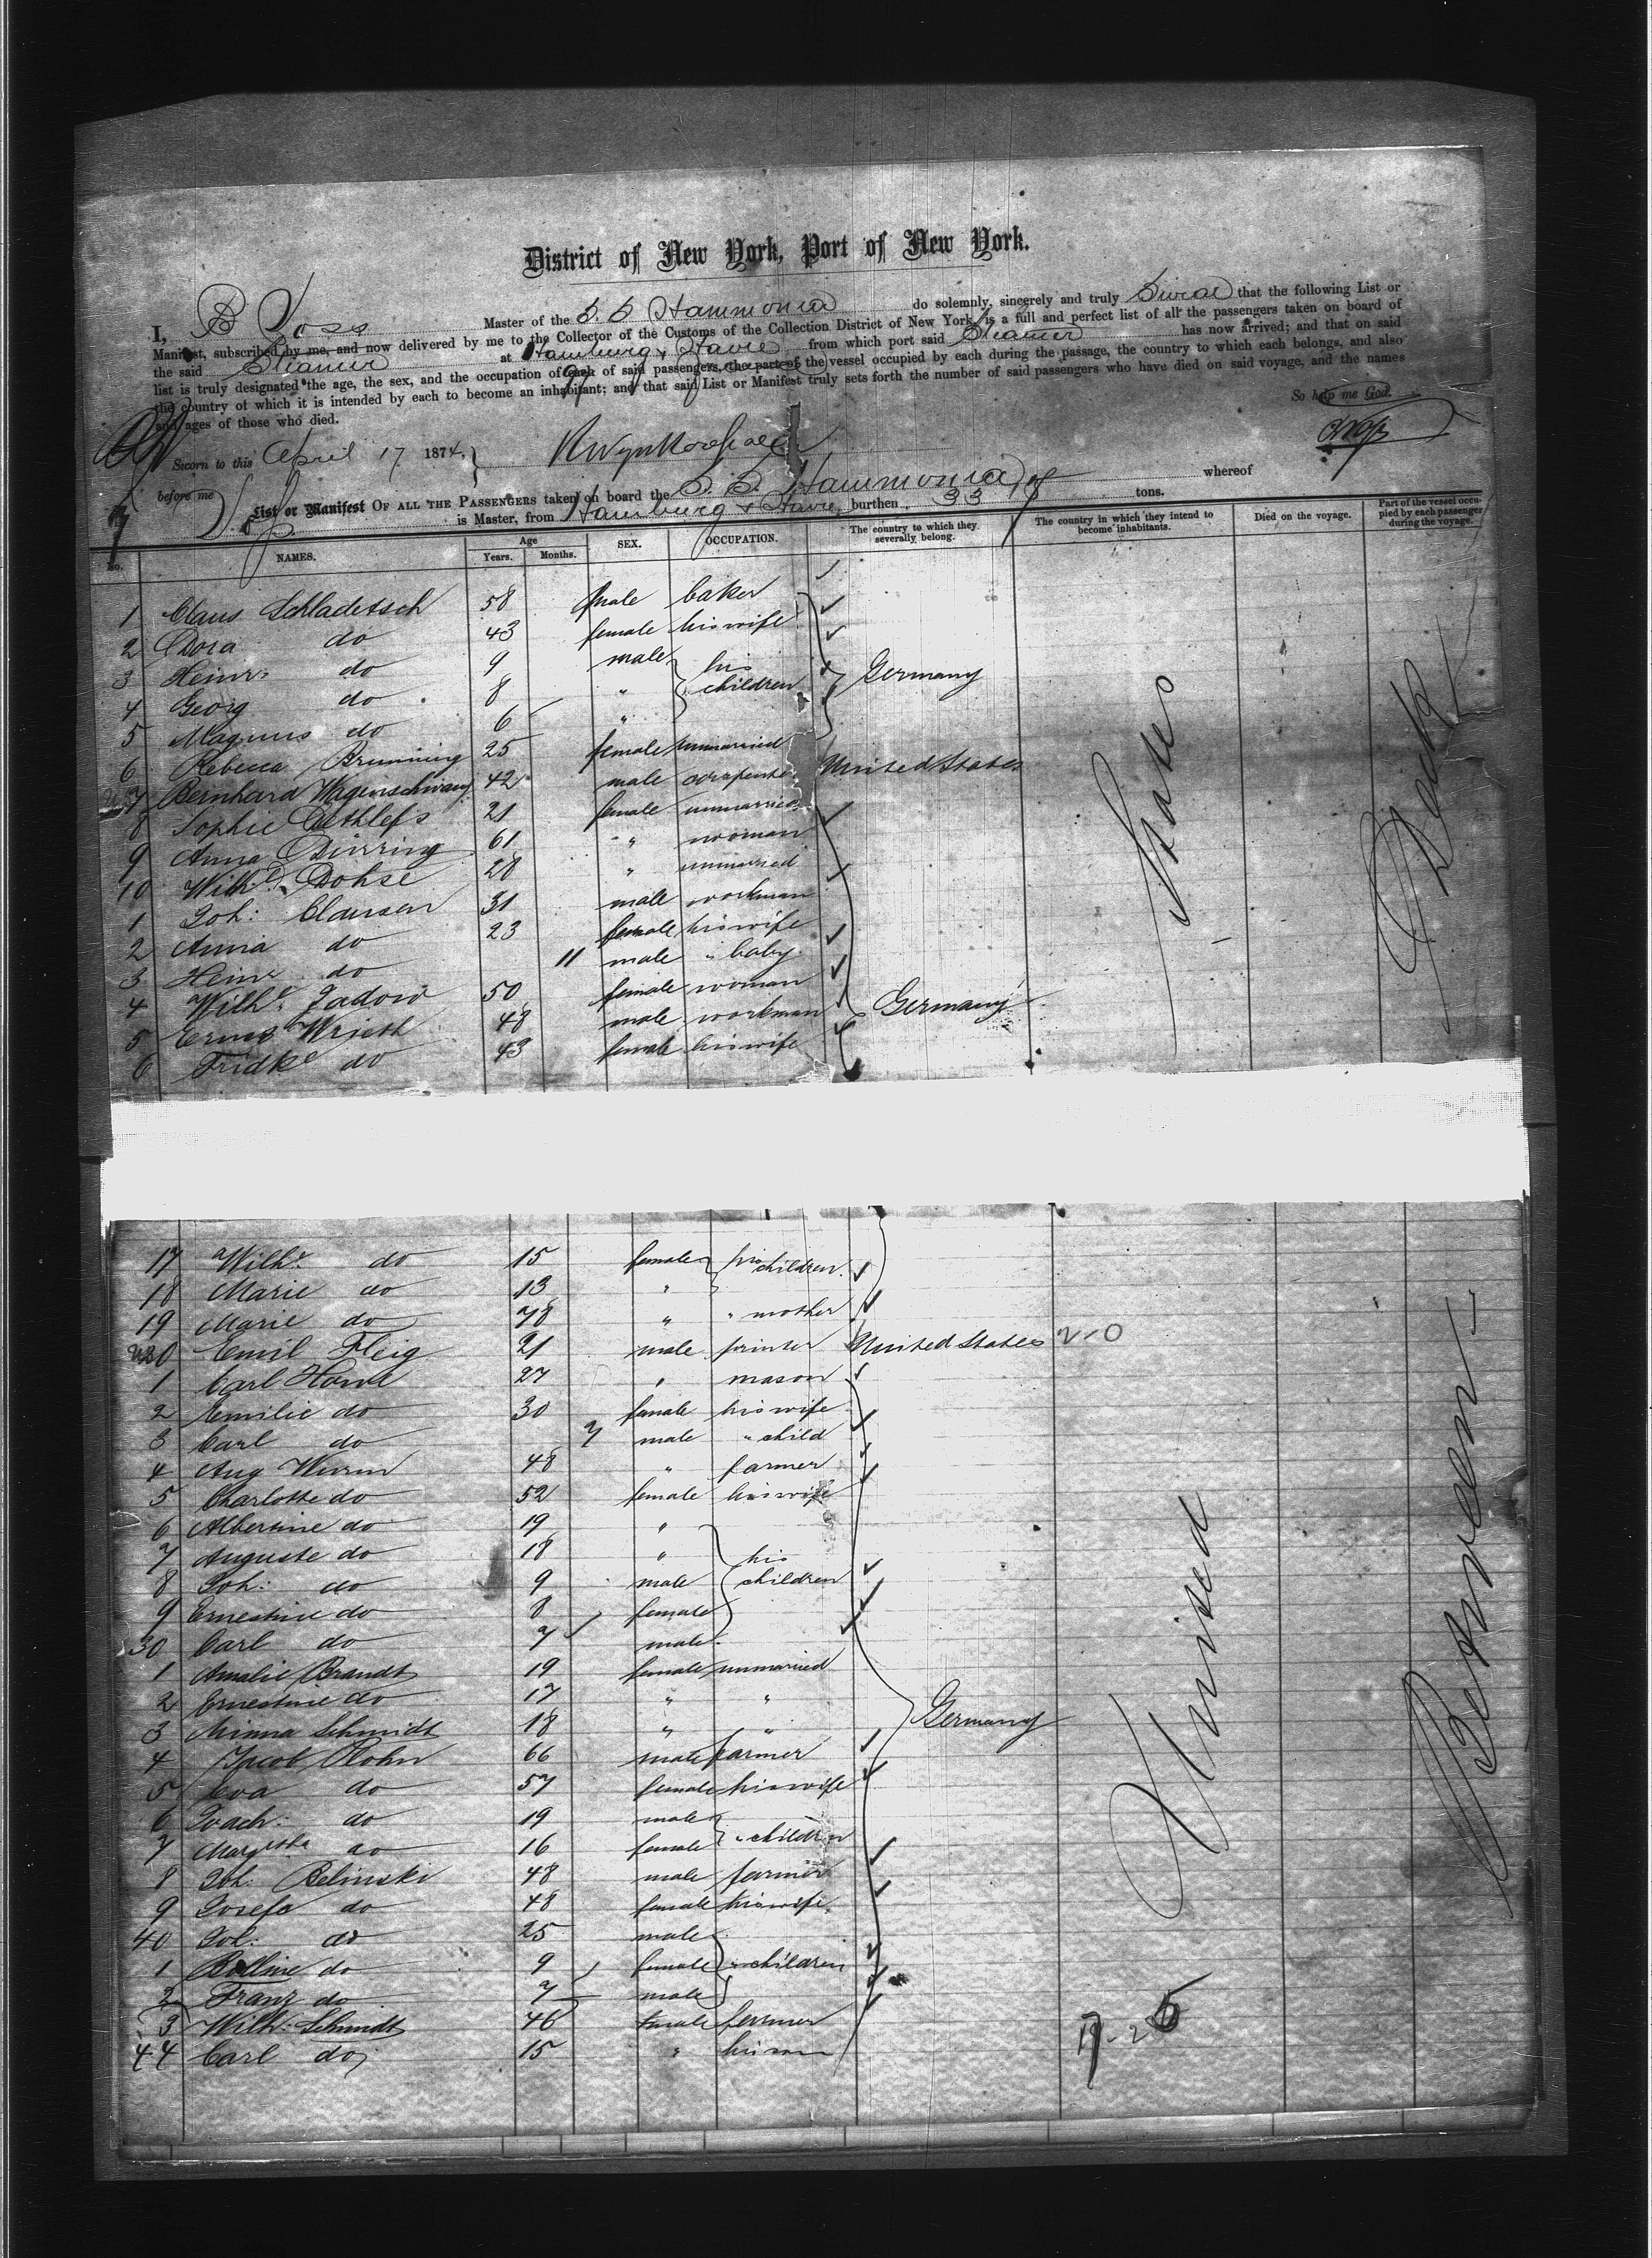 District of New York, Port of New York.
I, B Voss Master of the S. S. Hammonia do solemnly, sincerely and truly Swear that the following List or
Manifest, subscribed by me, and now delivered by me to the Collector of the Customs of the Collection District of New York, is a full and perfect list of all the passengers taken on board of
the said Steamer at Hamburg & Havre from which port said Steamer has now arrived; and that on said
list is truly designated the age, the sex, and the occupation of each of said passengers, the part of the vessel occupied by each during the passage, the country to which each belongs, and also
the country of which it is intended by each to become an inhabitant; and that said List or Manifest truly sets forth the number of said passengers who have died on said voyage, and the names
and ages of those who died. So help me God.
Sworn to this April 17 1874,
before me
List or Manifest OF ALL THE PASSENGERS taken on board the S. S. Hammonia whereof
is Master, from Hamburg & Havre burthen 33 tons.
No. NAMES. Age Years. Months. SEX. OCCUPATION. The country to which they severally belong. The country in which they intend to become inhabitants. Died on the voyage. Part of the vessel occupied by each passenger during the voyage.
1 Claus Schladetsch 58 male baker
2 Dora do 43 female his wife
3 Heinr: do 9 male his
4 Georg do 8 " children Germany
5 Magnus do 6 "
6 Rebecca Brunning 25 female unmarried
7 Bernhard Wigenschwang 42 male United States
8 Sophie Dethlefs 21 female unmarried
9 Anna Dürring 61 " woman
10 Wilh. Dohse 28 " unmarried
1 Joh: Clausen 31 male workman
2 Anna do 23 female his wife
3 Heinr do 11 male " baby
4 Wilh. Jadow 50 female woman
5 Wrieth 48 male workman Germany
6 Fridke do 43 female his wife
17 Wilh. do 15 female his children
18 Marie do 13 "
19 Marie do 78 " " mother
20 Emil Fleig 21 male printer United States
1 Carl 27 " mason
2 Emilie do 30 female his wife
3 Carl do 7 male " child
4 Aug Wurm 48 " farmer
5 Charlotte do 52 female his wife
6 Albertine do 19 "
7 Auguste do 18 " his
8 Joh: do 9 male children
9 Ernestine do 8 female
30 Carl do 7 male
1 Amalie Brandt 19 female unmarried
2 Ernestine do 17 " "
3 Minna Schmidt 18 " " Germany
4 Jacob Rohn 66 male farmer
5 Eva do 57 female his wife
6 Joach: do 19 male
7 Margretha do 16 female " children
8 Joh: Belinski 48 male farmer
9 Josefa do 48 female his wife
40 Joh: do 25 male
1 do 9 female " children
2 Franz do 7 male
3 Wilh: Schmidt 46 male farmer
44 Carl do 15 " his son
United States
Between Deck